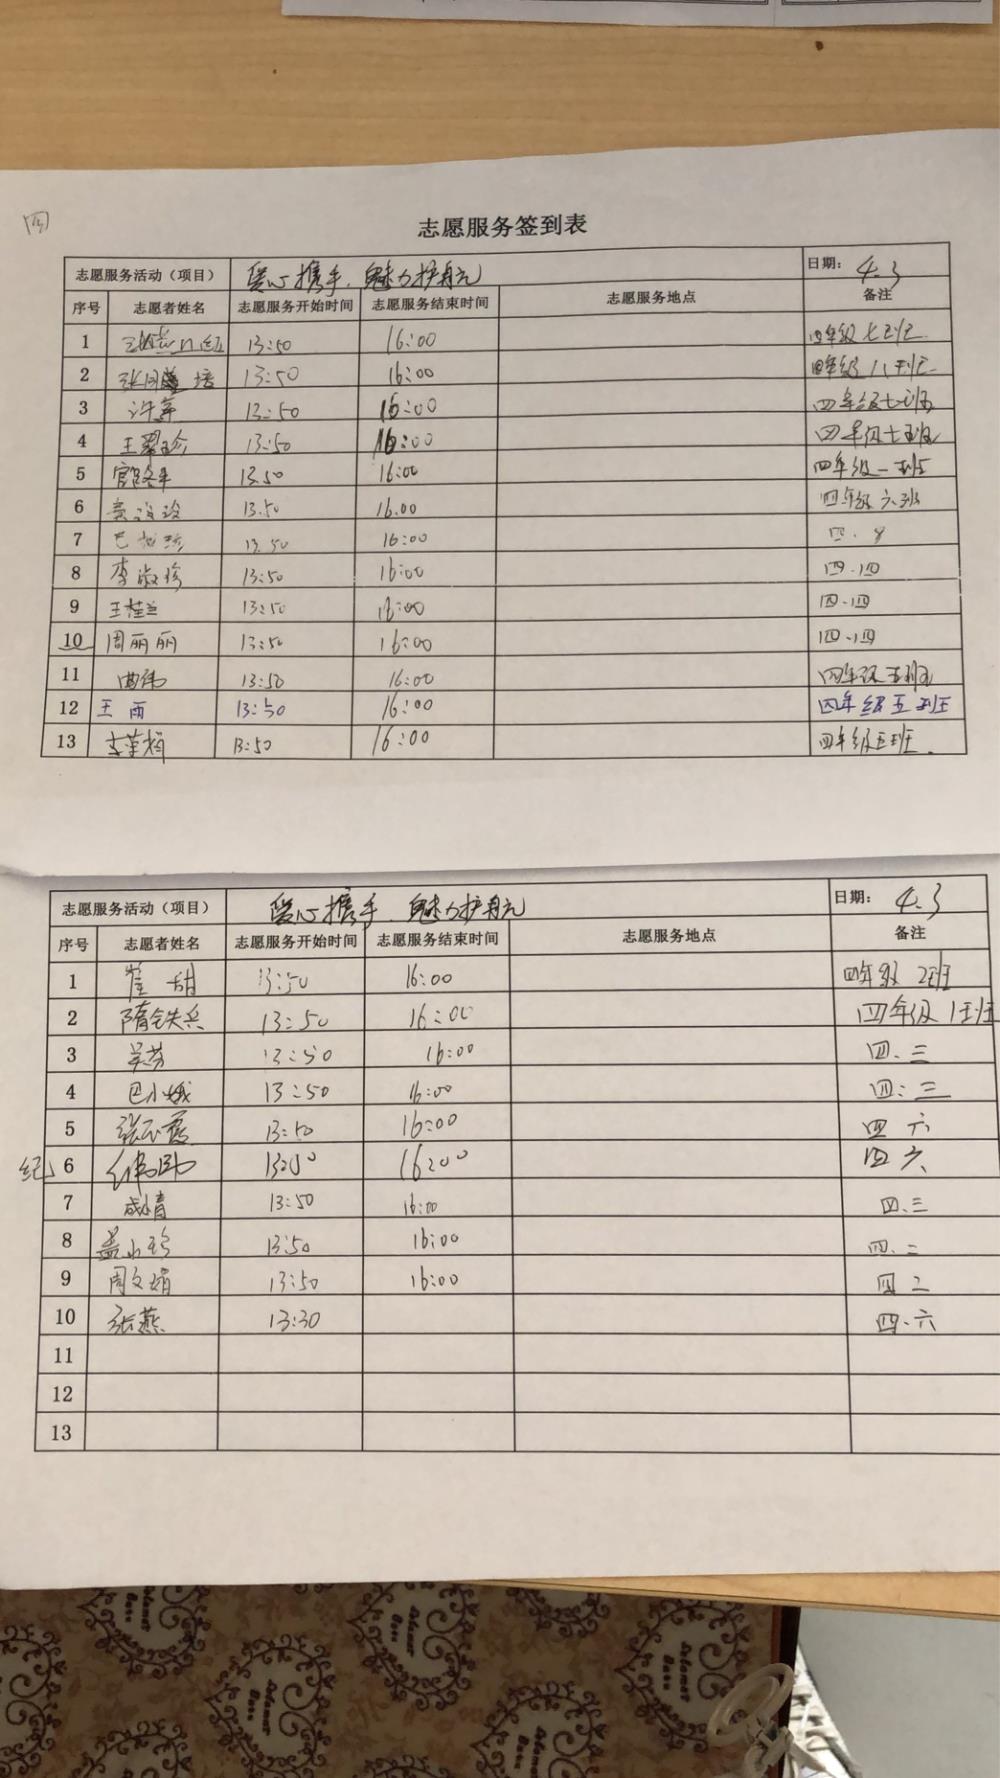 四
志愿服务签到表
志愿服务活动（项目） 爱心携手,魅力护舟元 日期: 4.3
序号 志愿者姓名 志愿服务开始时间 志愿服务结束时间 志愿服务地点 备注
1 13:50 16:00 四年级七班
2 13:50 16:00 四年级八班
3 许萍 13:50 16:00 四年级七班
4 王翠珍 13:50 16:00 四年级七班
5 13:50 16:00 四年级一班
6 13:50 16:00 四年级六班
7 13:50 16:00 四.8
8 李淑珍 13:50 16:00 四.四
9 王桂兰 13:50 16:00 四.四
10 周丽丽 13:50 16:00 四.四
11 曲伟 13:50 16:00 四年级五班
12 王雨 13:50 16:00 四年级五班
13 13:50 16:00 四年级五班.
志愿服务活动（项目） 爱心携手.魅力护舟元 日期: 4.3
序号 志愿者姓名 志愿服务开始时间 志愿服务结束时间 志愿服务地点 备注
1 崔甜 13:50 16:00 四年级2班
2 隋铁兵 13:50 16:00 四年级1班
3 吴芳 13:50 16:00 四.三
4 巴小娥 13:50 16:00 四:三
5 13:50 16:00 四六
纪 6 13:50 16:00 四六
7 成婧 13:50 16:00 四.三
8 13:50 16:00 四.二
9 周文娟 13:50 16:00 四二
10 张燕 13:30 四.六
11
12
13